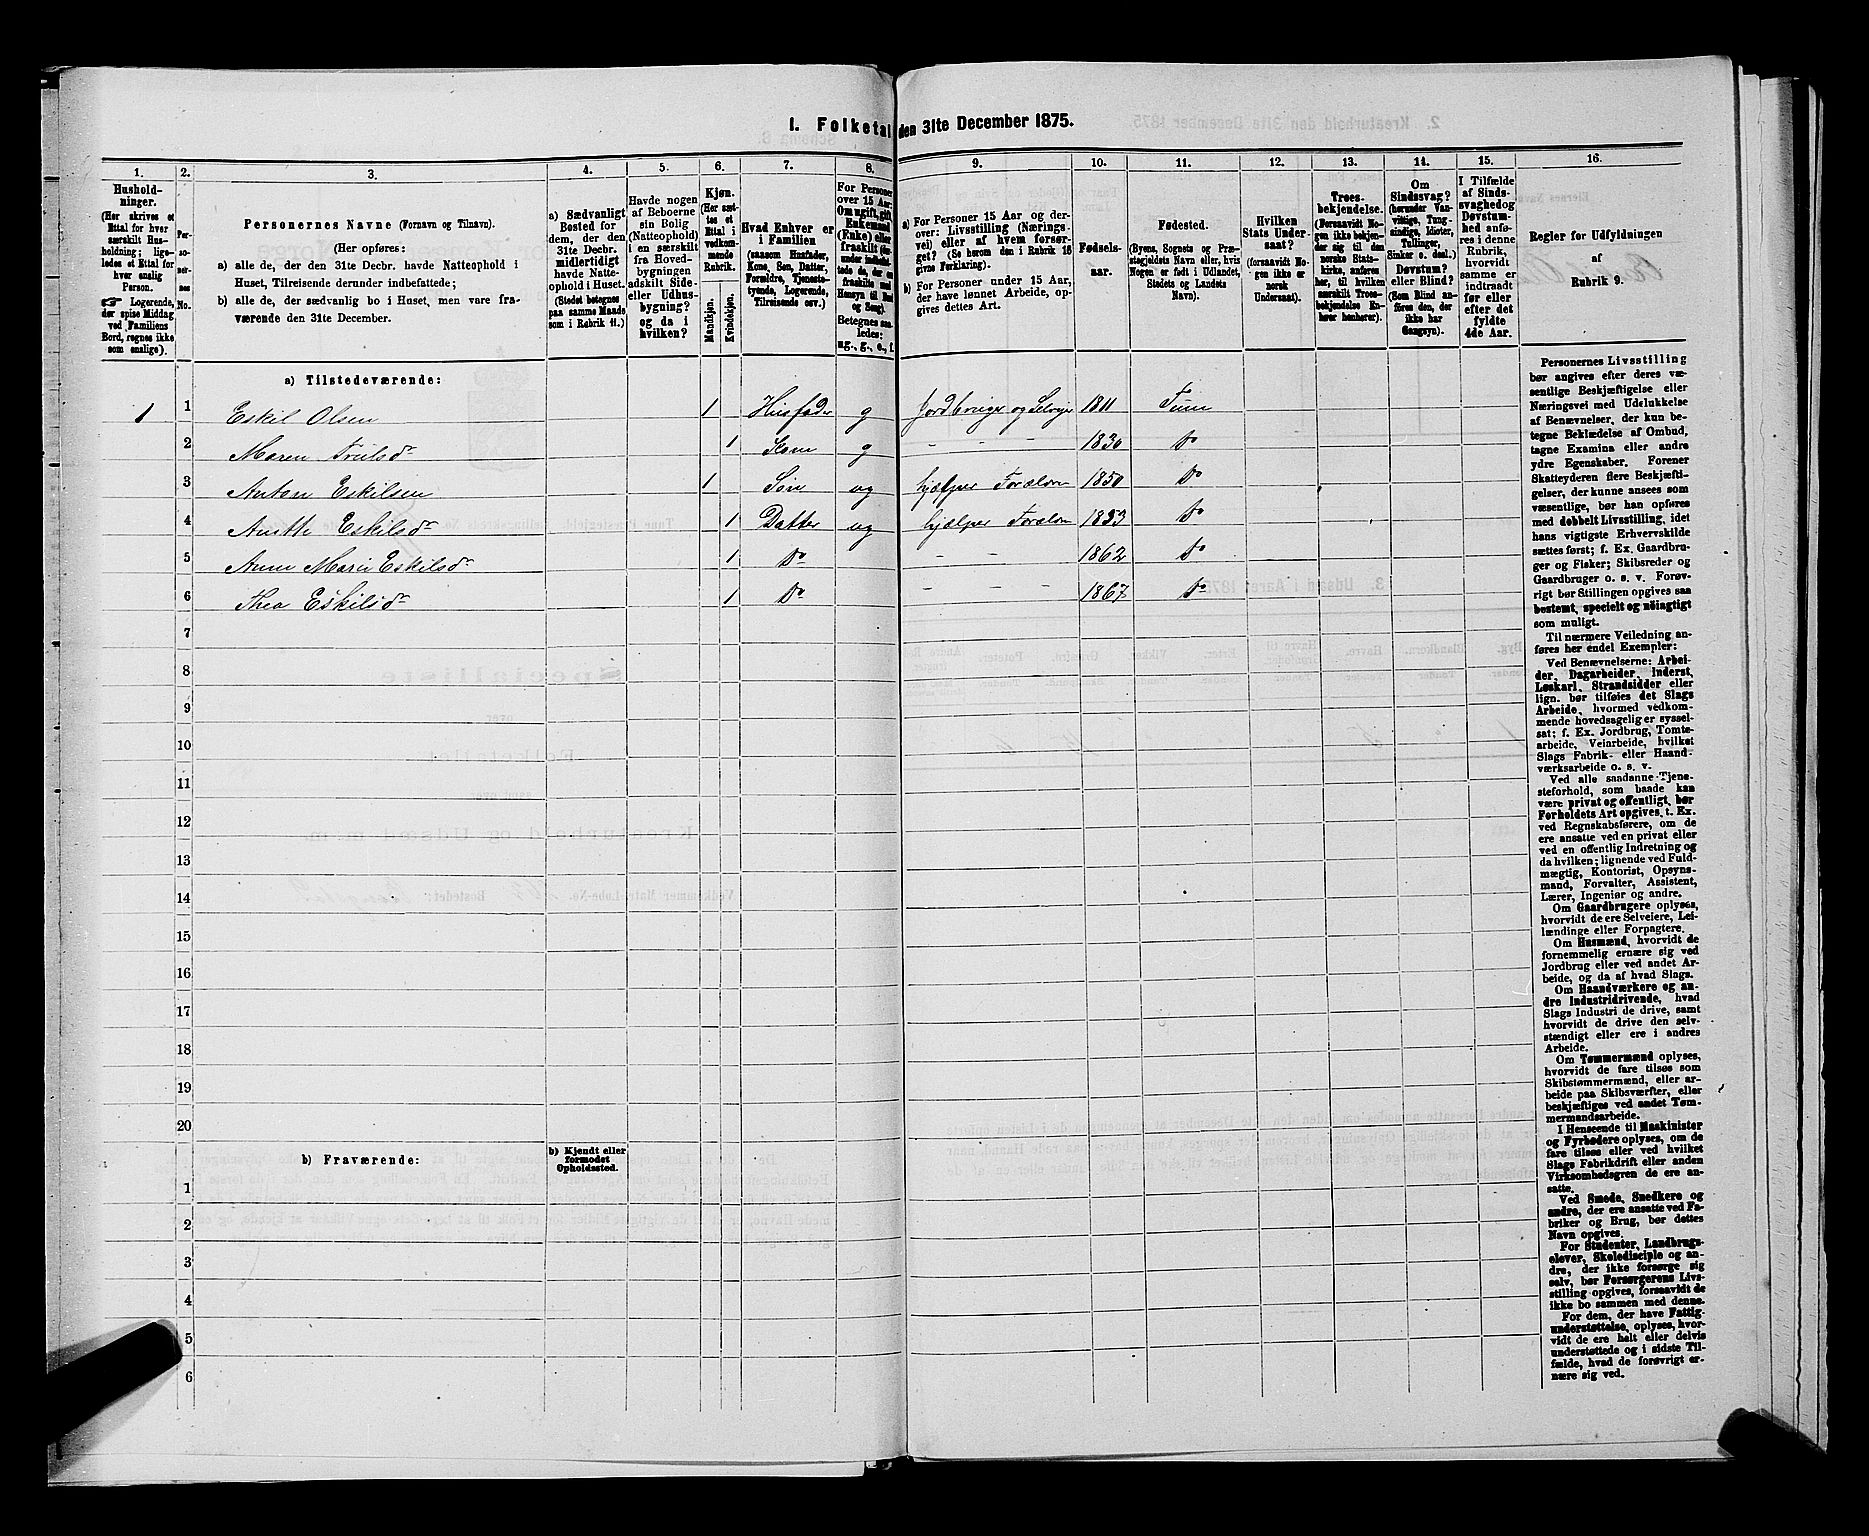 I. Folketal den 31te December 1875.
1. 2. 3. 4. 5. 6. 7. 8. 9. 10. 11. 12. 13. 14. 15. 16.
Husholdninger.
(Her skrives et
Ettal for hver
særskilt Husholdning; ligeledes et Ettal for
hver enslig
Person.
☞ Logerende,
der spise Middag
ved Familiens
Bord, regnes ikke
som enslige).
Personernes No.
Personernes Navne (Fornavn og Tilnavn).
(Her opføres:
a) alle de, der den 31te Decbr. havde Natteophold i
Huset, Tilreisende derunder indbefattede;
b) alle de, der sædvanlig bo i Huset, men vare fraværende den 31te December.
a) Sædvanligt
Bosted for
dem, der den
31te Decbr.
midlertidigt
havde Natteophold i Huset.
(Stedet betegnes
paa samme Maade
som i Rubrik 11.)
Havde nogen
af Beboerne
sin Bolig
(Natteophold)
i en særskilt
fra Hovedbygningen
adskilt Side- eller Udhusbygning?
og da i
hvilken?
Kjøn.
(Her sættes et
Ettal i
vedkommende
Rubrik.
Mandkjøn.
Kvindekjøn.
Hvad Enhver er
i Familien
(saasom Husfader,
Kone, Søn, Datter,
Forældre, Tjenestetyende, Logerende,
Tilreisende osv.)
For Personer
over 15 Aar:
Om ugift, gift,
Enkemand
(Enke) eller
fraskilt
Betegnes saaledes:
ug., g., e., f.
a) For Personer 15 Aar og derover: Livsstilling (Næringsvei) eller af hvem forsørget? (Se herom den i Rubrik 16
givne Forklaring).
b) For Personer under 15 Aar,
der have lønnet Arbeide, opgives dettes Art.
Fødselsaar.
Fødested.
(Byens, Sognets og Præstegjeldets Navn eller, hvis
Nogen er født i Udlandet,
Stedets og Landets
Navn).
Hvilken
Stats Undersaat?
(forsaavidt Nogen ikke er
norsk
Undersaat).
Troesbekjendelse.
(Forsaavidt Nogen ikke bekjender sig til den
norske Statskirke, anføres
her, til hvilken
særskilt Troesbekjendelse Enhver henhører).
Om
Sindssvag?
(herunder Vanvittige, Tungsindige, Idioter,
Tullinger,
Sinker o. desl.)
Døvstum?
eller Blind?
(Som Blind anføres den, der
ikke har
Gangsyn).
I Tilfælde
af Sindssvaghed og
Døvstumhed anføres i denne
Rubrik,
hvorvidt
samme er
indtraadt
før eller
efter det
fyldte
4de Aar.
Regler for Udfyldningen
af
Rubrik 9.
a) Tilstedeværende:
1 1 Eskil Olsen 1 Husfader g Jordbruger og Selvejer 1811 Tune
2 Maren Trulsd. 1 Kone g - - - 1830 Do
3 Anton Eskilsen 1 Søn ug hjælper Forældre 1850 Do
4 Anette Eskilsd. 1 Datter ug hjælper Forældre 1853 Do
5 Anne Marie Eskilsd. 1 Do - - 1862 Do
6 Thea Eskilsd. 1 Do - - 1867 Do
7
8
9
10
11
12
13
14
15
16
17
18
19
20
b) Fraværende:
b) Kjendt eller
formodet
Opholdssted.
1
2
3
4
5
6
Personernes Livsstilling
bør angives efter deres væsentlige Beskjæftigelse eller
Næringsvei med Udelukkelse
af Benævnelser, der kun betegne Beklædelse af Ombud,
tagne Examina eller andre
ydre Egenskaber. Forener
Skatteyderen flere Beskjæftigelser, der kunne ansees som
væsentlige, bør han opføres
med dobbelt Livsstilling, idet
hans vigtigste Erhvervskilde
sættes først; f. Ex. Gaardbruger og Fisker; Skibsreder og
Gaardbruger o. s. v. Forøvrigt bør Stillingen opgives saa
bestemt, specielt og nöiagtigt
som muligt.
Til nærmere Veiledning anføres her endel Exempler:
Ved Benævnelserne: Arbeider, Dagarbeider, Inderst,
Løskarl, Strandsidder eller
lign. bør tilføies det Slags
Arbeide, hvormed vedkommende hovedsagelig er sysselsat; f. Ex. Jordbrug, Tomtearbeide, Veiarbeide, hvilket
Slags Fabrik- eller Haandværksarbeide o. s. v.
Ved alle saadanne Tjenesteforhold, som baade kan
være privat og offentligt, bør
Forholdets Art opgives, t. Ex.
ved Regnskabsførere, om de
ere ansatte ved en privat eller
ved en offentlig Indretning og
da hvilken; lignende ved Fuldmægtig, Kontorist, Opsynsmand, Forvalter, Assistent,
Lærer, Ingeniør og andre.
Om Gaardbrugere oplyses,
hvorvidt de ere Selveiere, Leilændinge eller Forpagtere.
Om Husmænd, hvorvidt de
fornemmelig ernære sig ved
Jordbrug eller ved andet Arbeide, og da af hvad Slags.
Om Haandværkere og andre Industridrivende, hvad
Slags Industri de drive, samt
hvorvidt de drive den selvstændigt eller ere i andres
Arbeide.
Om Tømmermænd oplyses,
hvorvidt de fare tilsøs som
Skibstømmermænd, eller arbeide paa Skibsværfter, eller
beskjæftiges ved andet Tømmermandsarbeide.
I Henseende til Maskinister
og Fyrbødere oplyses, om de
fare tilsøs eller ved hvilket
Slags Fabrikdrift eller anden
Virksomhedsgren de ere ansatte.
Ved Smede, Snedkere og
andre, der ere ansatte ved Fabriker og Brug, bør dettes
Navn opgives.
For Studenter, Landbrugselever, Skoledisciple og andre, der ikke forsørge sig
selv, bør Forsørgerens Livsstilling opgives, forsaavidt de
ikke bo sammen med denne.
For dem, der have Fattigunderstøttelse, oplyses, hvorvidt de ere helt eller delvis
understøttede og i sidste Tilfælde, hvad de forøvrigt ernære sig ved.